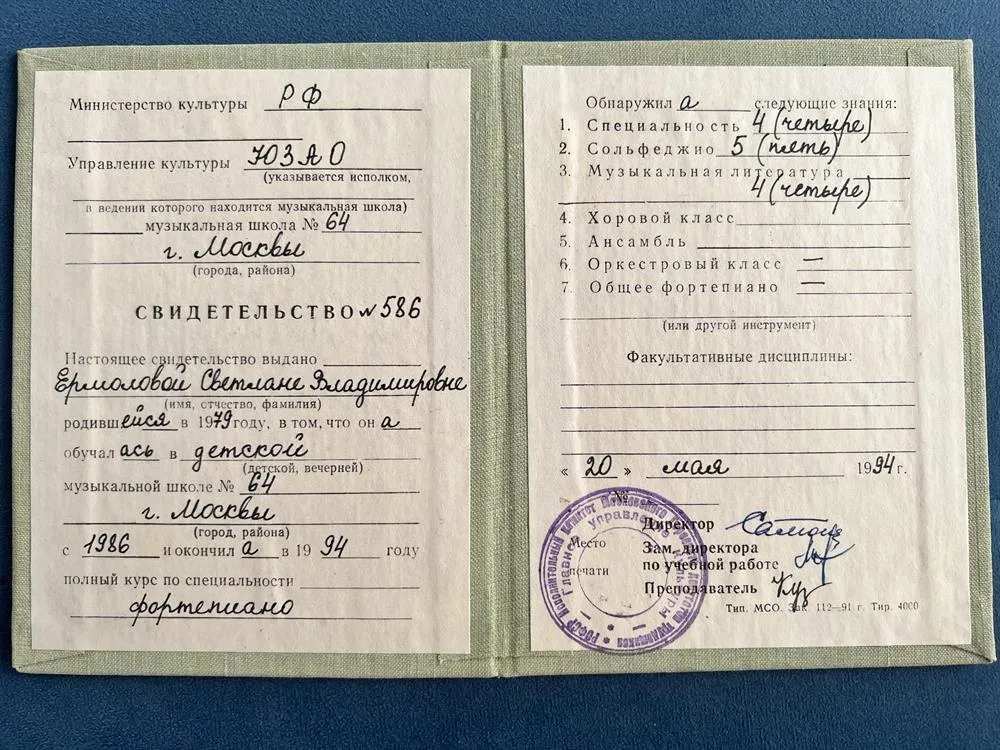 Министерство культуры РФ
Управление культуры ЮЗАО
(указывается исполком,
в ведении которого находится музыкальная школа)
музыкальная школа № 64
г. Москвы
(города, района)
СВИДЕТЕЛЬСТВО № 586
Настоящее свидетельство выдано
Ермоловой Светлане Владимировне
(имя, отчество, фамилия)
родившейся в 1979 году, в том, что он а
обучал ась в детской
(детской, вечерней)
музыкальной школе № 64
г. Москвы
(город, района)
с 1986 и окончил а в 19 94 году
полный курс по специальности
фортепиано
Обнаружил а следующие знания:
1. Специальность 4 (четыре)
2. Сольфеджио 5 (пять)
3. Музыкальная литература
4 (четыре)
4. Хоровой класс
5. Ансамбль
6. Оркестровый класс —
7. Общее фортепиано —
(или другой инструмент)
Факультативные дисциплины:
« 20 » мая 1994 г.
№
Директор
Место
Зам. директора
по учебной работе
печати
Преподаватель
Тип. МСО. Зак. 112—91 г. Тир. 4000
РСФСР Исполнительный комитет Московского городского трудящихся
Главное управление культуры